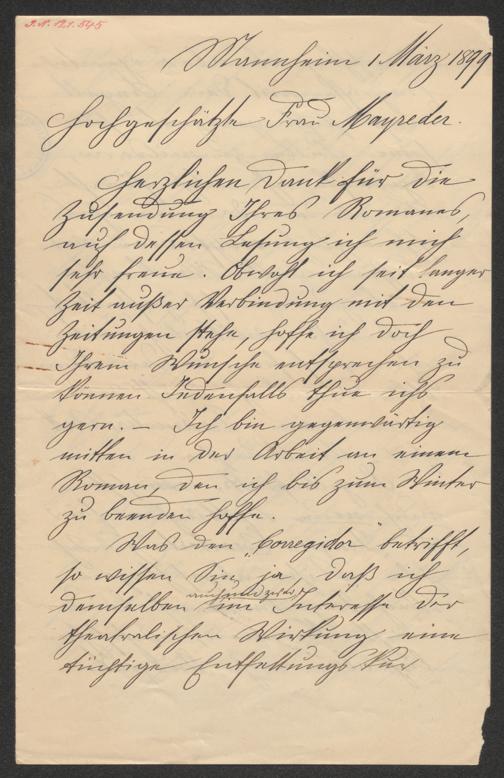 J.N. 121.545
Mannheim 1 März 1899
Hochgeschätzte Frau Mayreder.
Herzlichen Dank für die
Zusendung Ihres Romanes,
auf dessen Lesung ich mich
sehr freue. Obwohl ich seit langer
Zeit außer Verbindung mit den
Zeitungen stehe, hoffe ich doch
Ihrem Wunsche entsprechen zu
können Jedenfalls thue ichs
gern. – Ich bin gegenwärtig
mitten in der Arbeit an einem
Roman, den ich bis zum Winter
zu beenden hoffe.
Was den „Corregidor" betrifft,
so wissen Sie ja, daß ich
auch und zwar
demselben im Interesse der
theatralischen Wirkung eine
tüchtige Entfettungskur